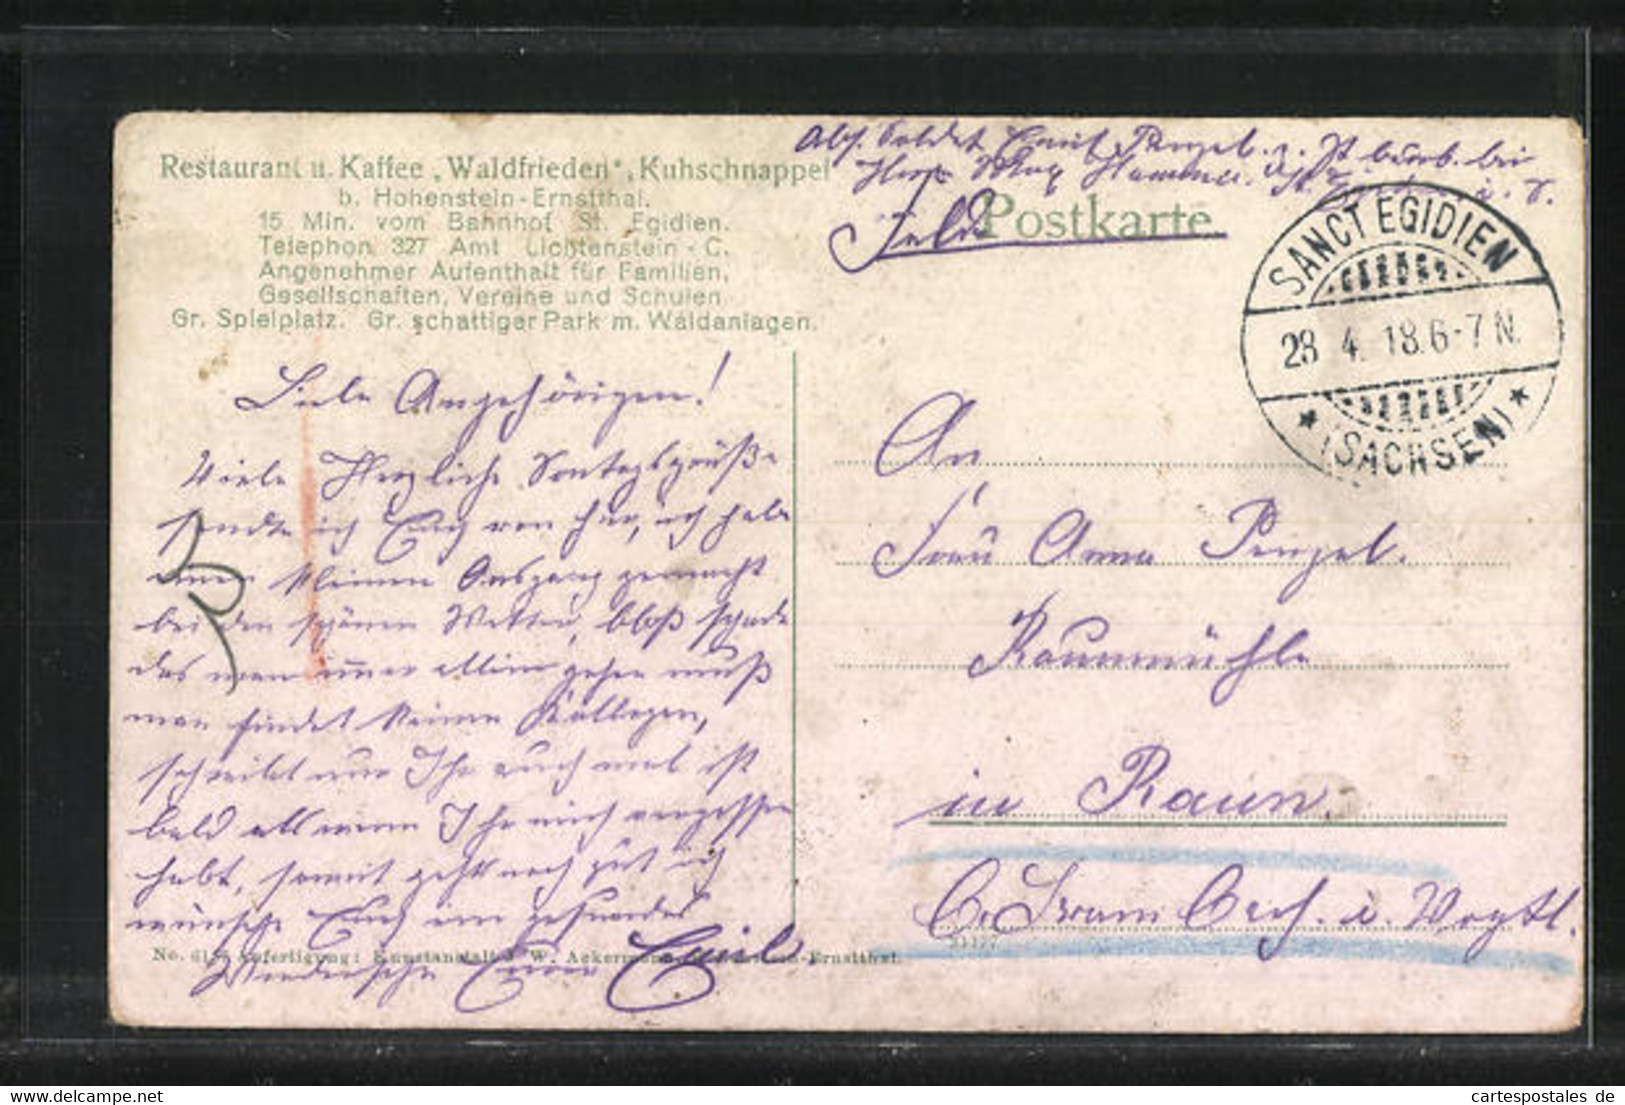 Restaurant u. Kaffee „Waldfrieden“, Kuhschnappel
b. Hohenstein-Ernstthal.
15 Min. vom Bahnhof St. Egidien.
Telephon 327 Amt Lichtenstein-C.
Angenehmer Aufenthalt für Familien,
Gesellschaften, Vereine und Schulen
Gr. Spielplatz. Gr. schattiger Park m. Waldanlagen.
Abs. Soldat Emil Penzel. z. Zt. bei
Herrn Max Hammer. St. Egidien i. S.
Feld Postkarte
SANCT EGIDIEN
28 4. 18. 6-7 N.
* (SACHSEN) *
Liebe Angehörigen!
Viele Herzliche Sontagsgrüße
sendte ich Euch von hier, ich habe
einen kleinen Ausgang gemacht
bei den schönen Wetter, bloß schade
das man immer allein gehen muß
man findet keinen Kollegen,
schreibt nur Ihr auch mal ist
bald als wenn Ihr mich vergessen
habt, somit geht noch gut ich
wünsche Euch ein gesundes
Wiedersehn Euer Emil
An
Frau Anna Penzel.
Raunmühle
in Raun.
b. Bram bach. i. Vogtl.
No. Anfertigung: Kunstanstalt J. W. Ackermann, Hohenstein-Ernstthal.